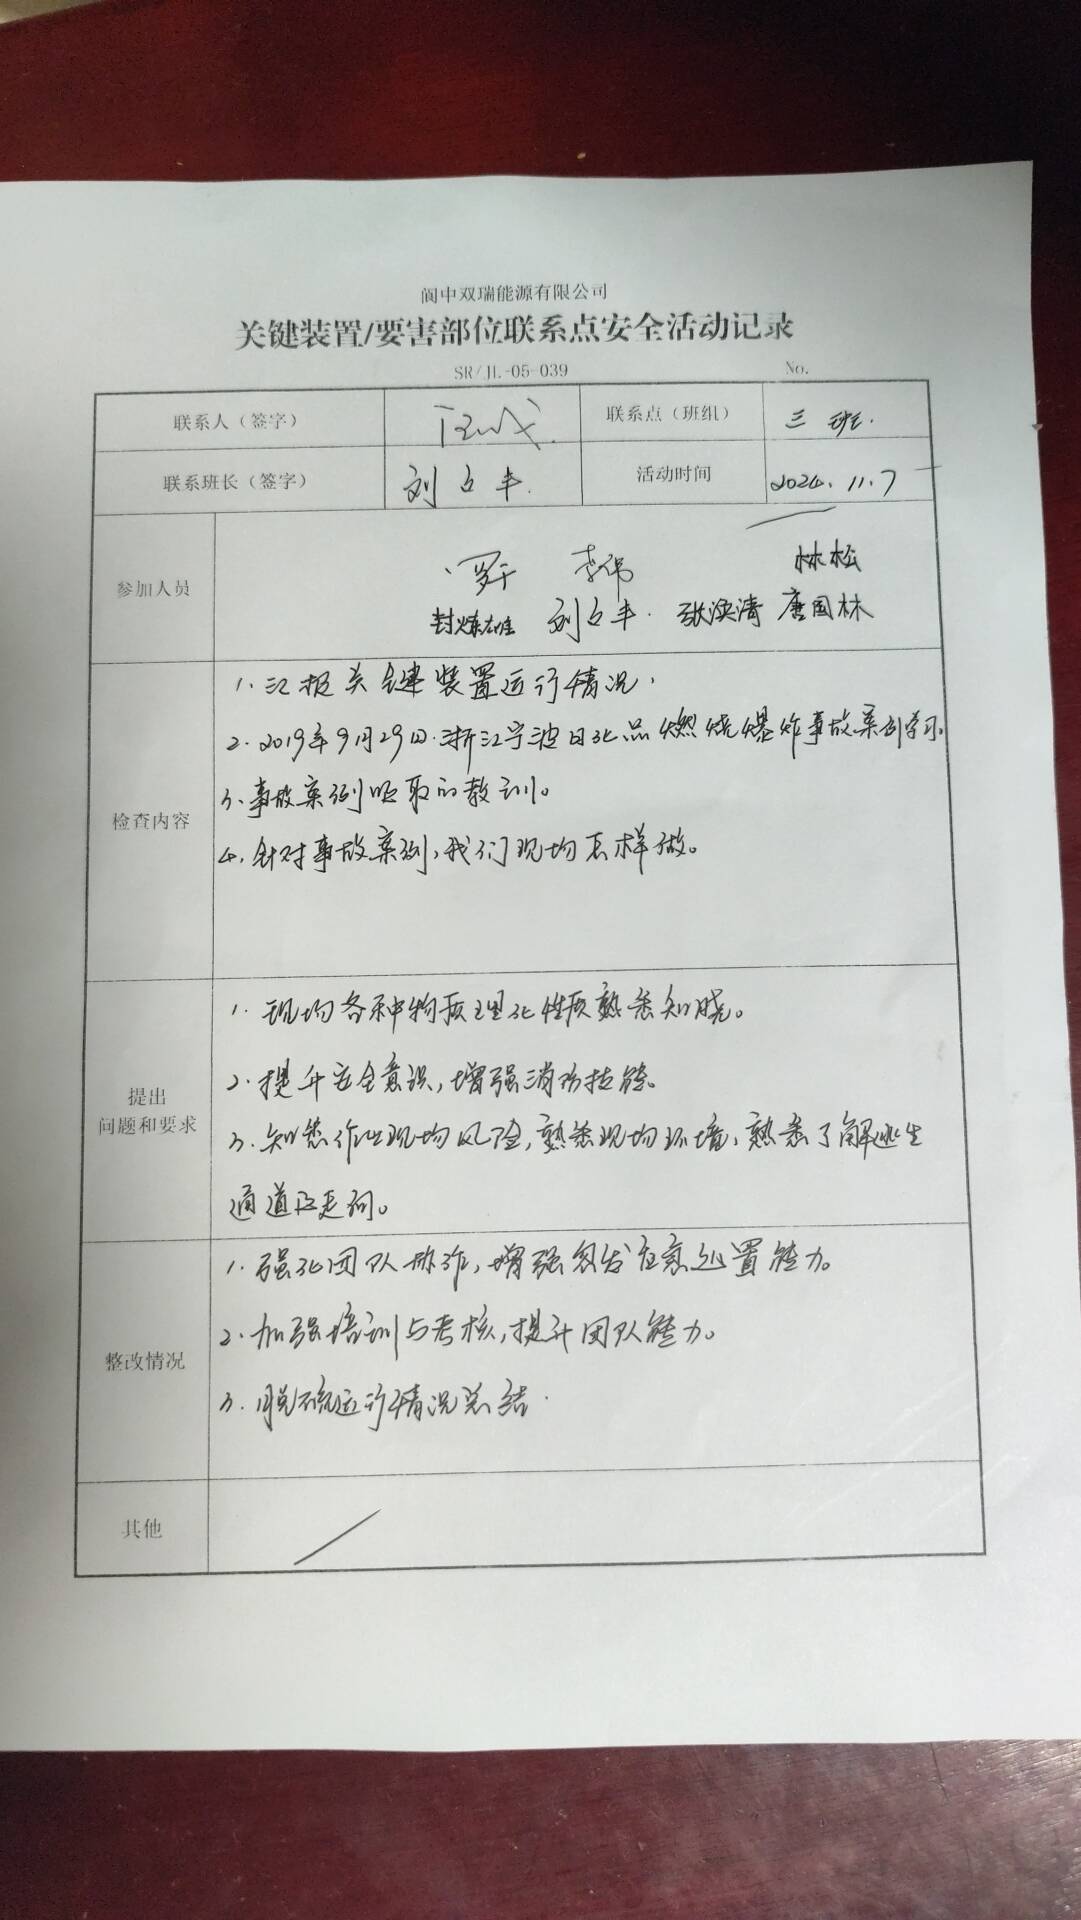 阆中双瑞能源有限公司
关键装置/要害部位联系点安全活动记录
SR/JL-05-039 No.
联系人（签字） 联系点（班组） 三班.
联系班长（签字） 刘占丰. 活动时间 2024.11.7
参加人员
李伟 林松
刘占丰. 张渶清 唐国林
检查内容
1.汇报关键装置运行情况.
2.2019年9月29日.浙江宁波日化品燃烧爆炸事故案例学习.
3.事故案例吸取的教训。
4.针对事故案例,我们现场怎样做。
提出
问题和要求
1.现场各种物质理化性质熟悉知晓。
2.提升安全意识,增强消防技能。
3.知悉作业现场风险,熟悉现场环境,熟悉了解逃生
通道及走向。
整改情况
1.强化团队协作,增强突发应急处置能力。
2.加强培训与考核,提升团队能力。
3.脱硫运行情况总结.
其他